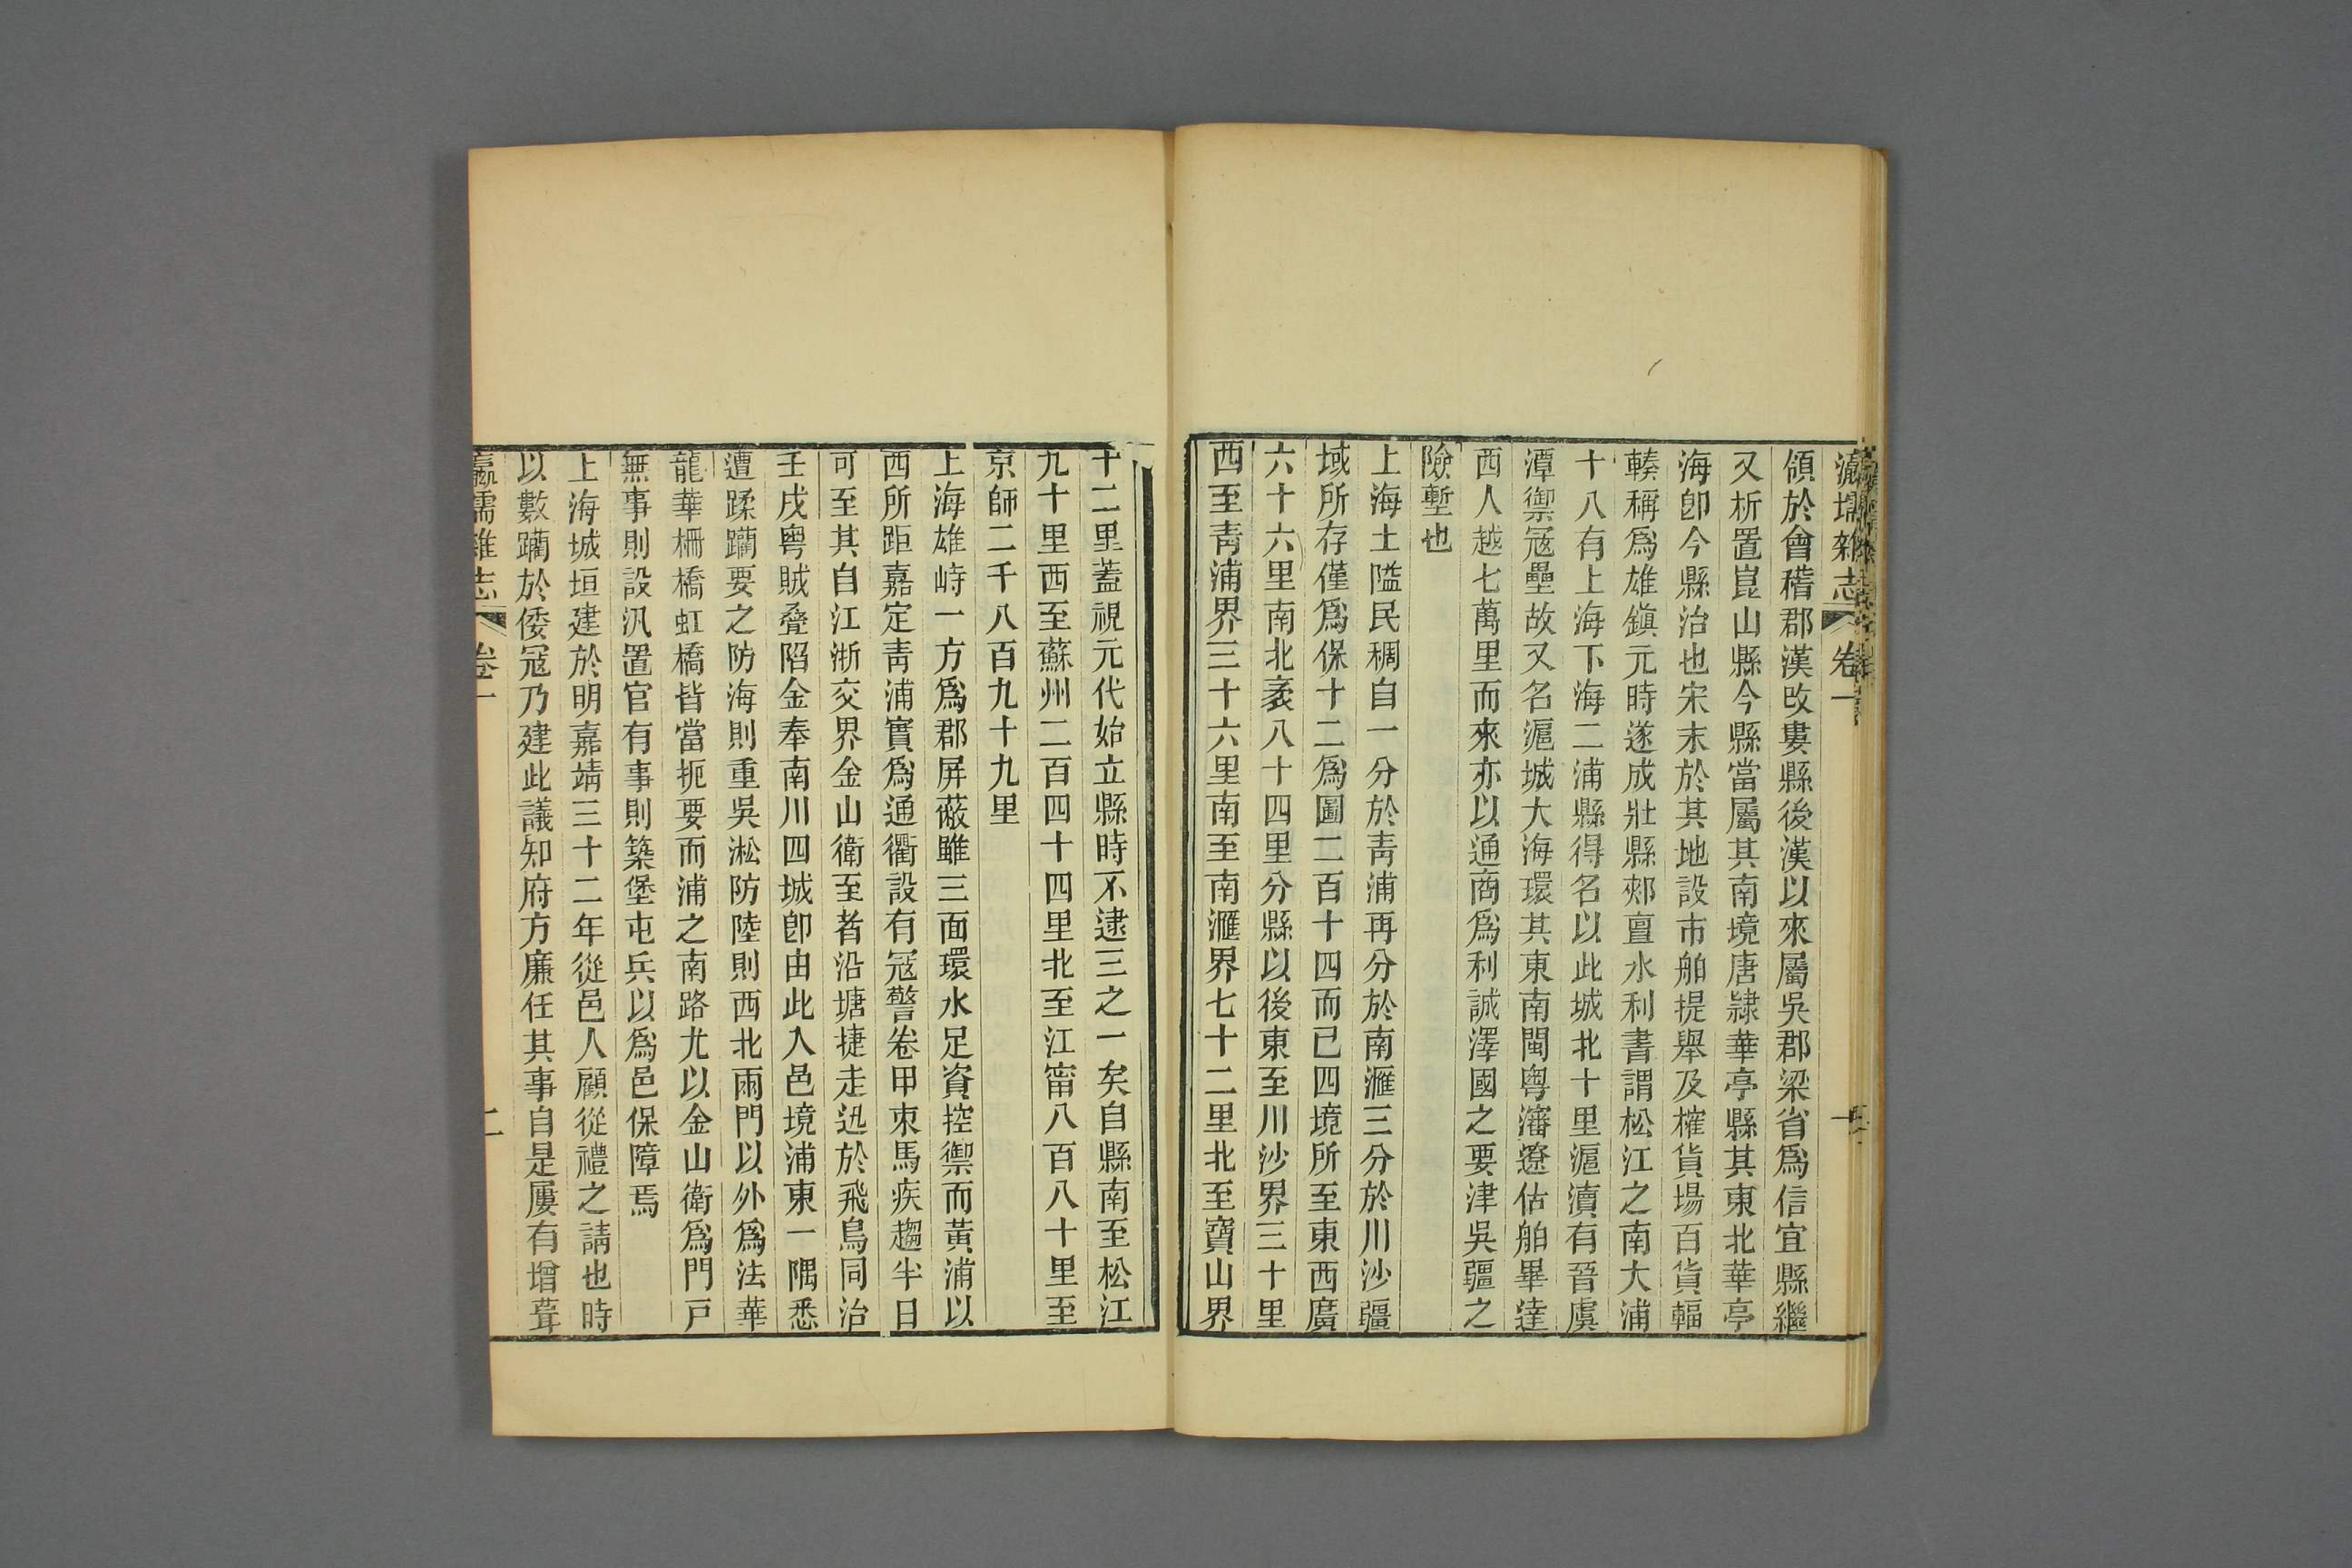 瀛壖雜志 卷一 一
領於會稽郡漢改婁縣後漢以來屬吳郡梁省爲信宜縣繼
又析置崑山縣今縣當屬其南境唐隸華亭縣其東北華亭
海卽今縣治也宋末於其地設市舶提舉及榷貨場百貨輻
輳稱爲雄鎭元時遂成壯縣郟亶水利書謂松江之南大浦
十八有上海下海二浦縣得名以此城北十里滬瀆有晉虞
潭禦寇壘故又名滬城大海環其東南閩粵瀋遼估舶畢達
西人越七萬里而來亦以通商爲利誠澤國之要津吳疆之
險塹也
上海土隘民稠自一分於青浦再分於南滙三分於川沙疆
域所存僅爲保十二爲圖二百十四而已四境所至東西廣
六十六里南北袤八十四里分縣以後東至川沙界三十里
西至青浦界三十六里南至南滙界七十二里北至寶山界
十二里蓋視元代始立縣時不逮三之一矣自縣南至松江
九十里西至蘇州二百四十四里北至江甯八百八十里至
京師二千八百九十九里
上海雄峙一方爲郡屏蔽雖三面環水足資控禦而黃浦以
西所距嘉定青浦實爲通衢設有寇警卷甲束馬疾趨半日
可至其自江浙交界金山衛至者沿塘捷走迅於飛鳥同治
壬戌粵賊疊陷金奉南川四城卽由此入邑境浦東一隅悉
遭蹂躪要之防海則重吳淞防陸則西北兩門以外爲法華
龍華柵橋虹橋皆當扼要而浦之南路尤以金山衛爲門戸
無事則設汛置官有事則築堡屯兵以爲邑保障焉
上海城垣建於明嘉靖三十二年從邑人顧從禮之請也時
以數躪於倭寇乃建此議知府方廉任其事自是屢有增葺
瀛壖雜志 卷一 二